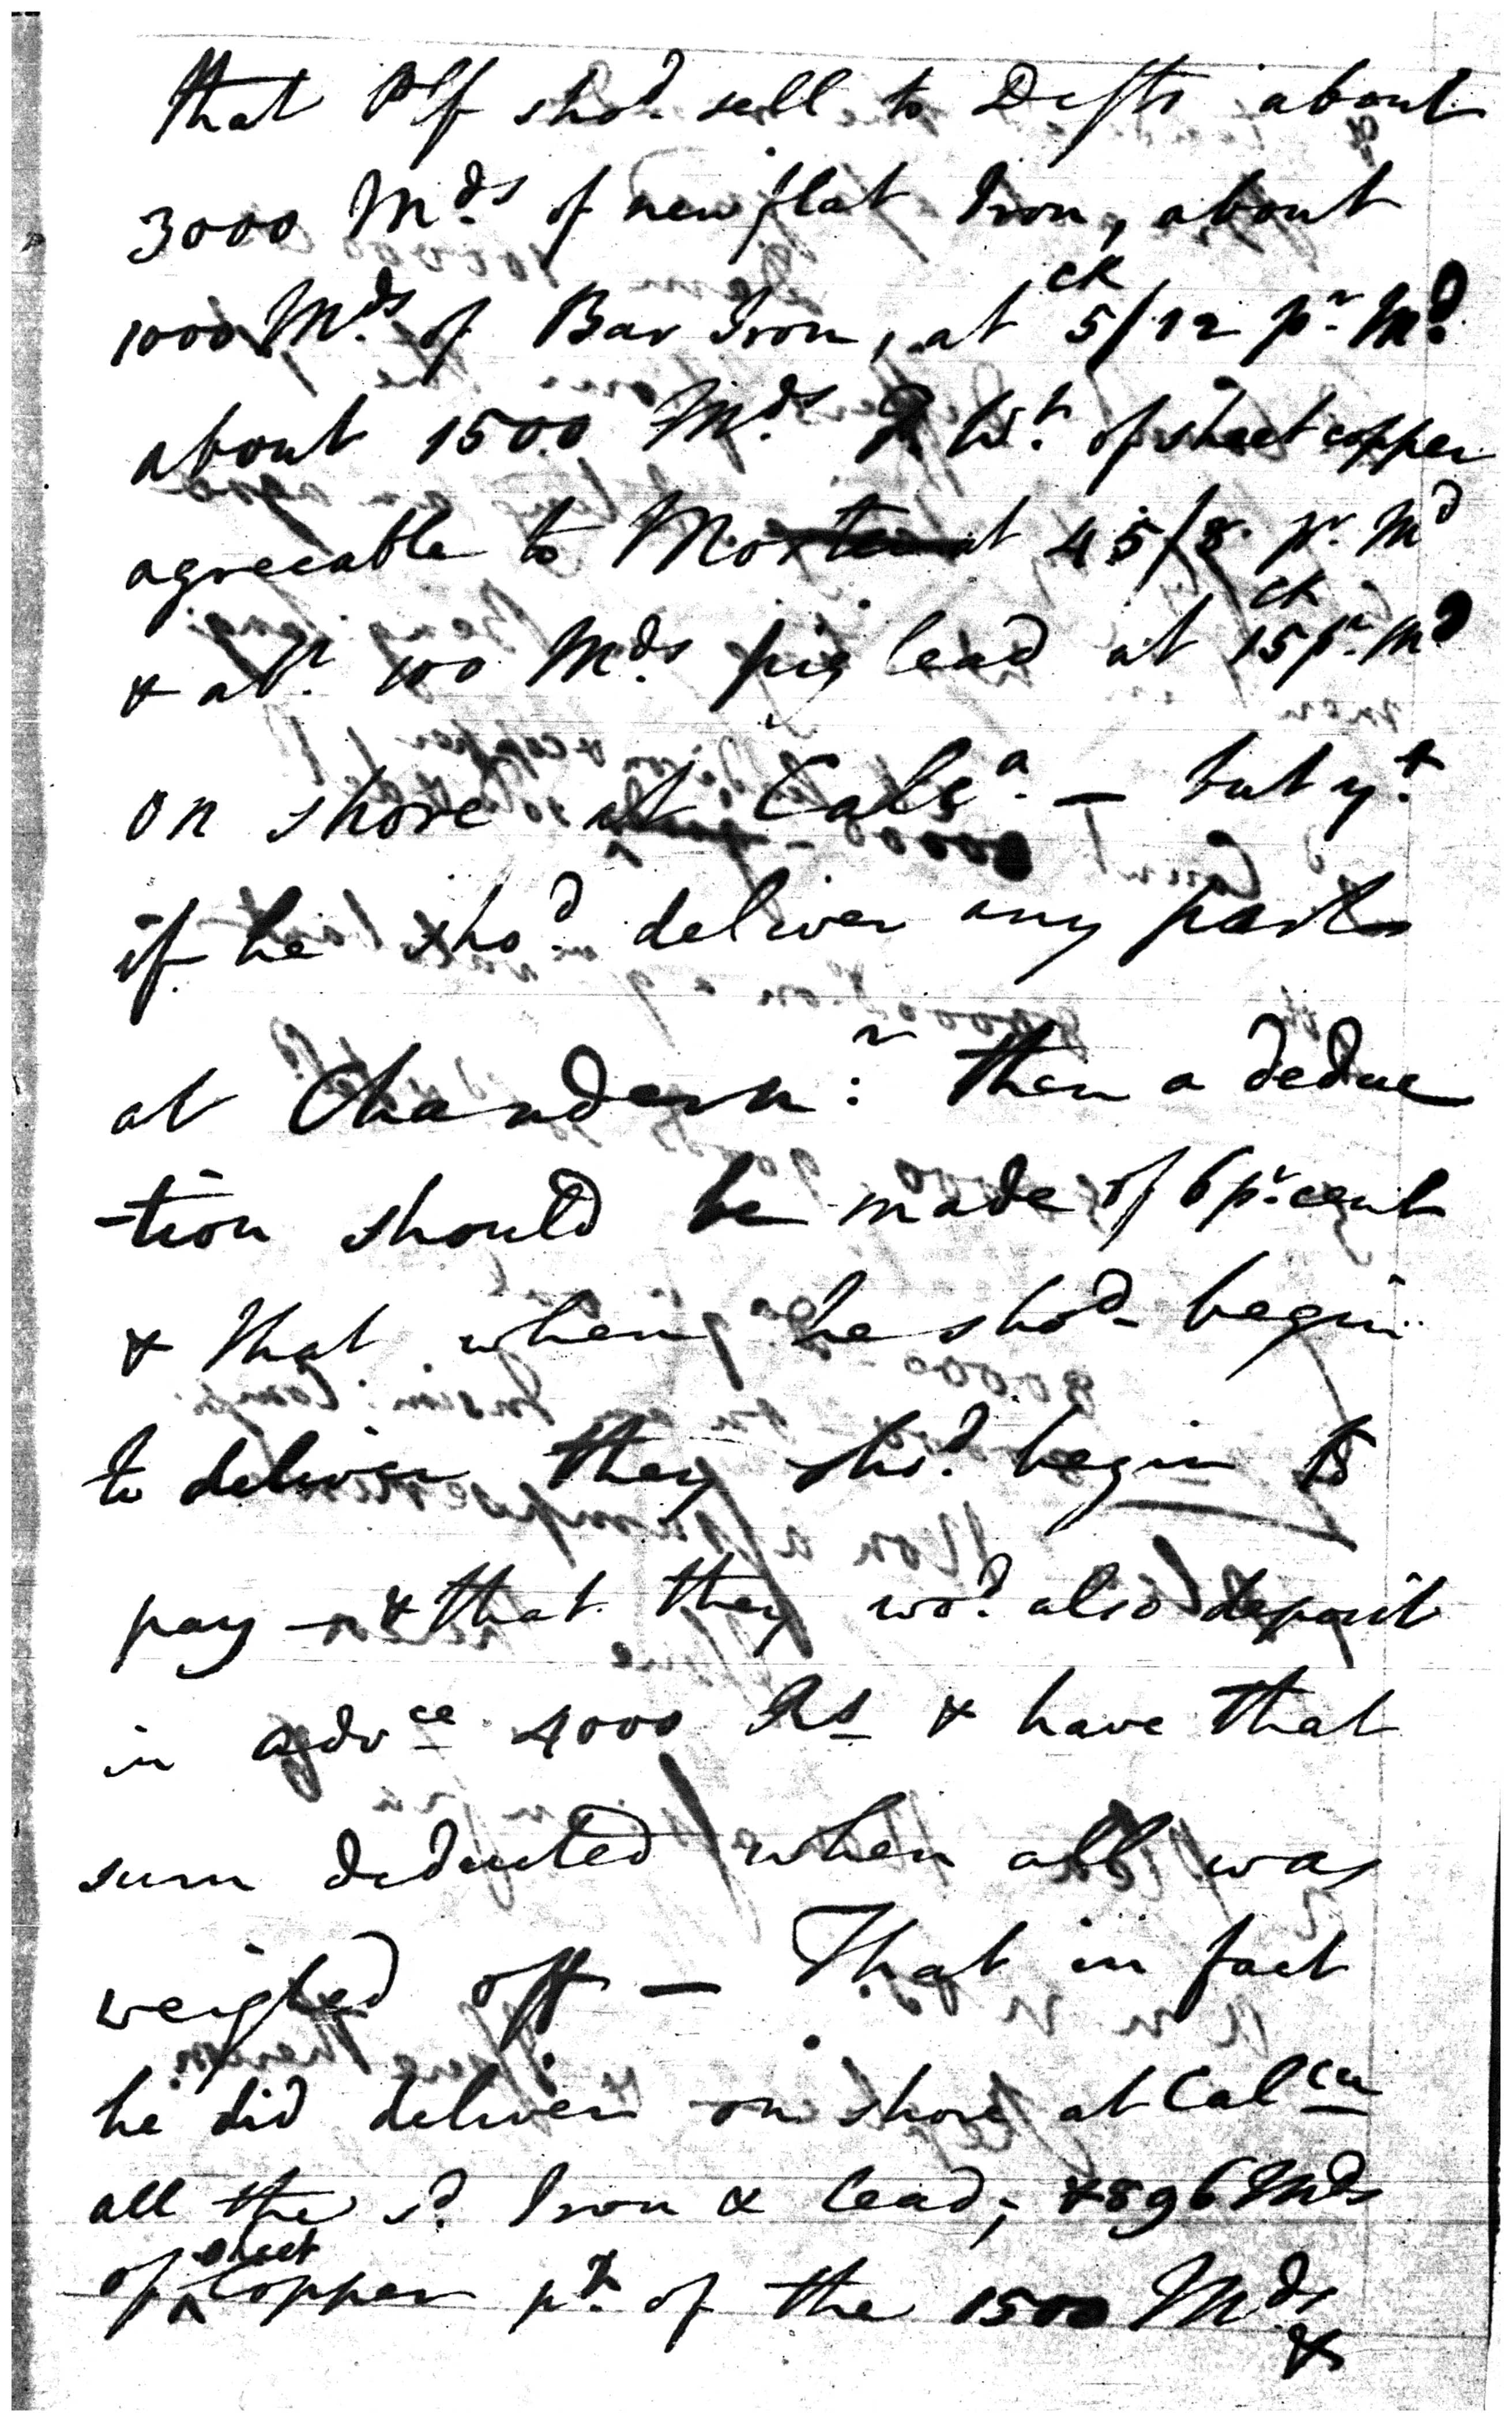 that Plf sho.d sell to Defts about
3000 M.ds of new flat Iron, about
1000 M.ds of Bar Iron, at ck 5/12 p.r M.d
about 1500 M.ds Wt. of sheet copper
agreeable to at 45/8. p.r M.d
& abt. 100 M.ds pig lead at ck 15 p.r M.d
on shore at Calca. — but y.t
if he sho.d deliver any part
at Chandern:r then a deduc
-tion should be made of 6 p.r cent
& that when he sho.d begin
to deliver they sho.d begin to
pay — & that they wo.d also deposit
in advce 4000 Rs & have that
sum deducted when all was
weighed off — That in fact
he did deliver on shore at Calcca
all the s.d Iron & lead; & 896 Mds
of sheet Copper p.t of the 1500 M.ds
&